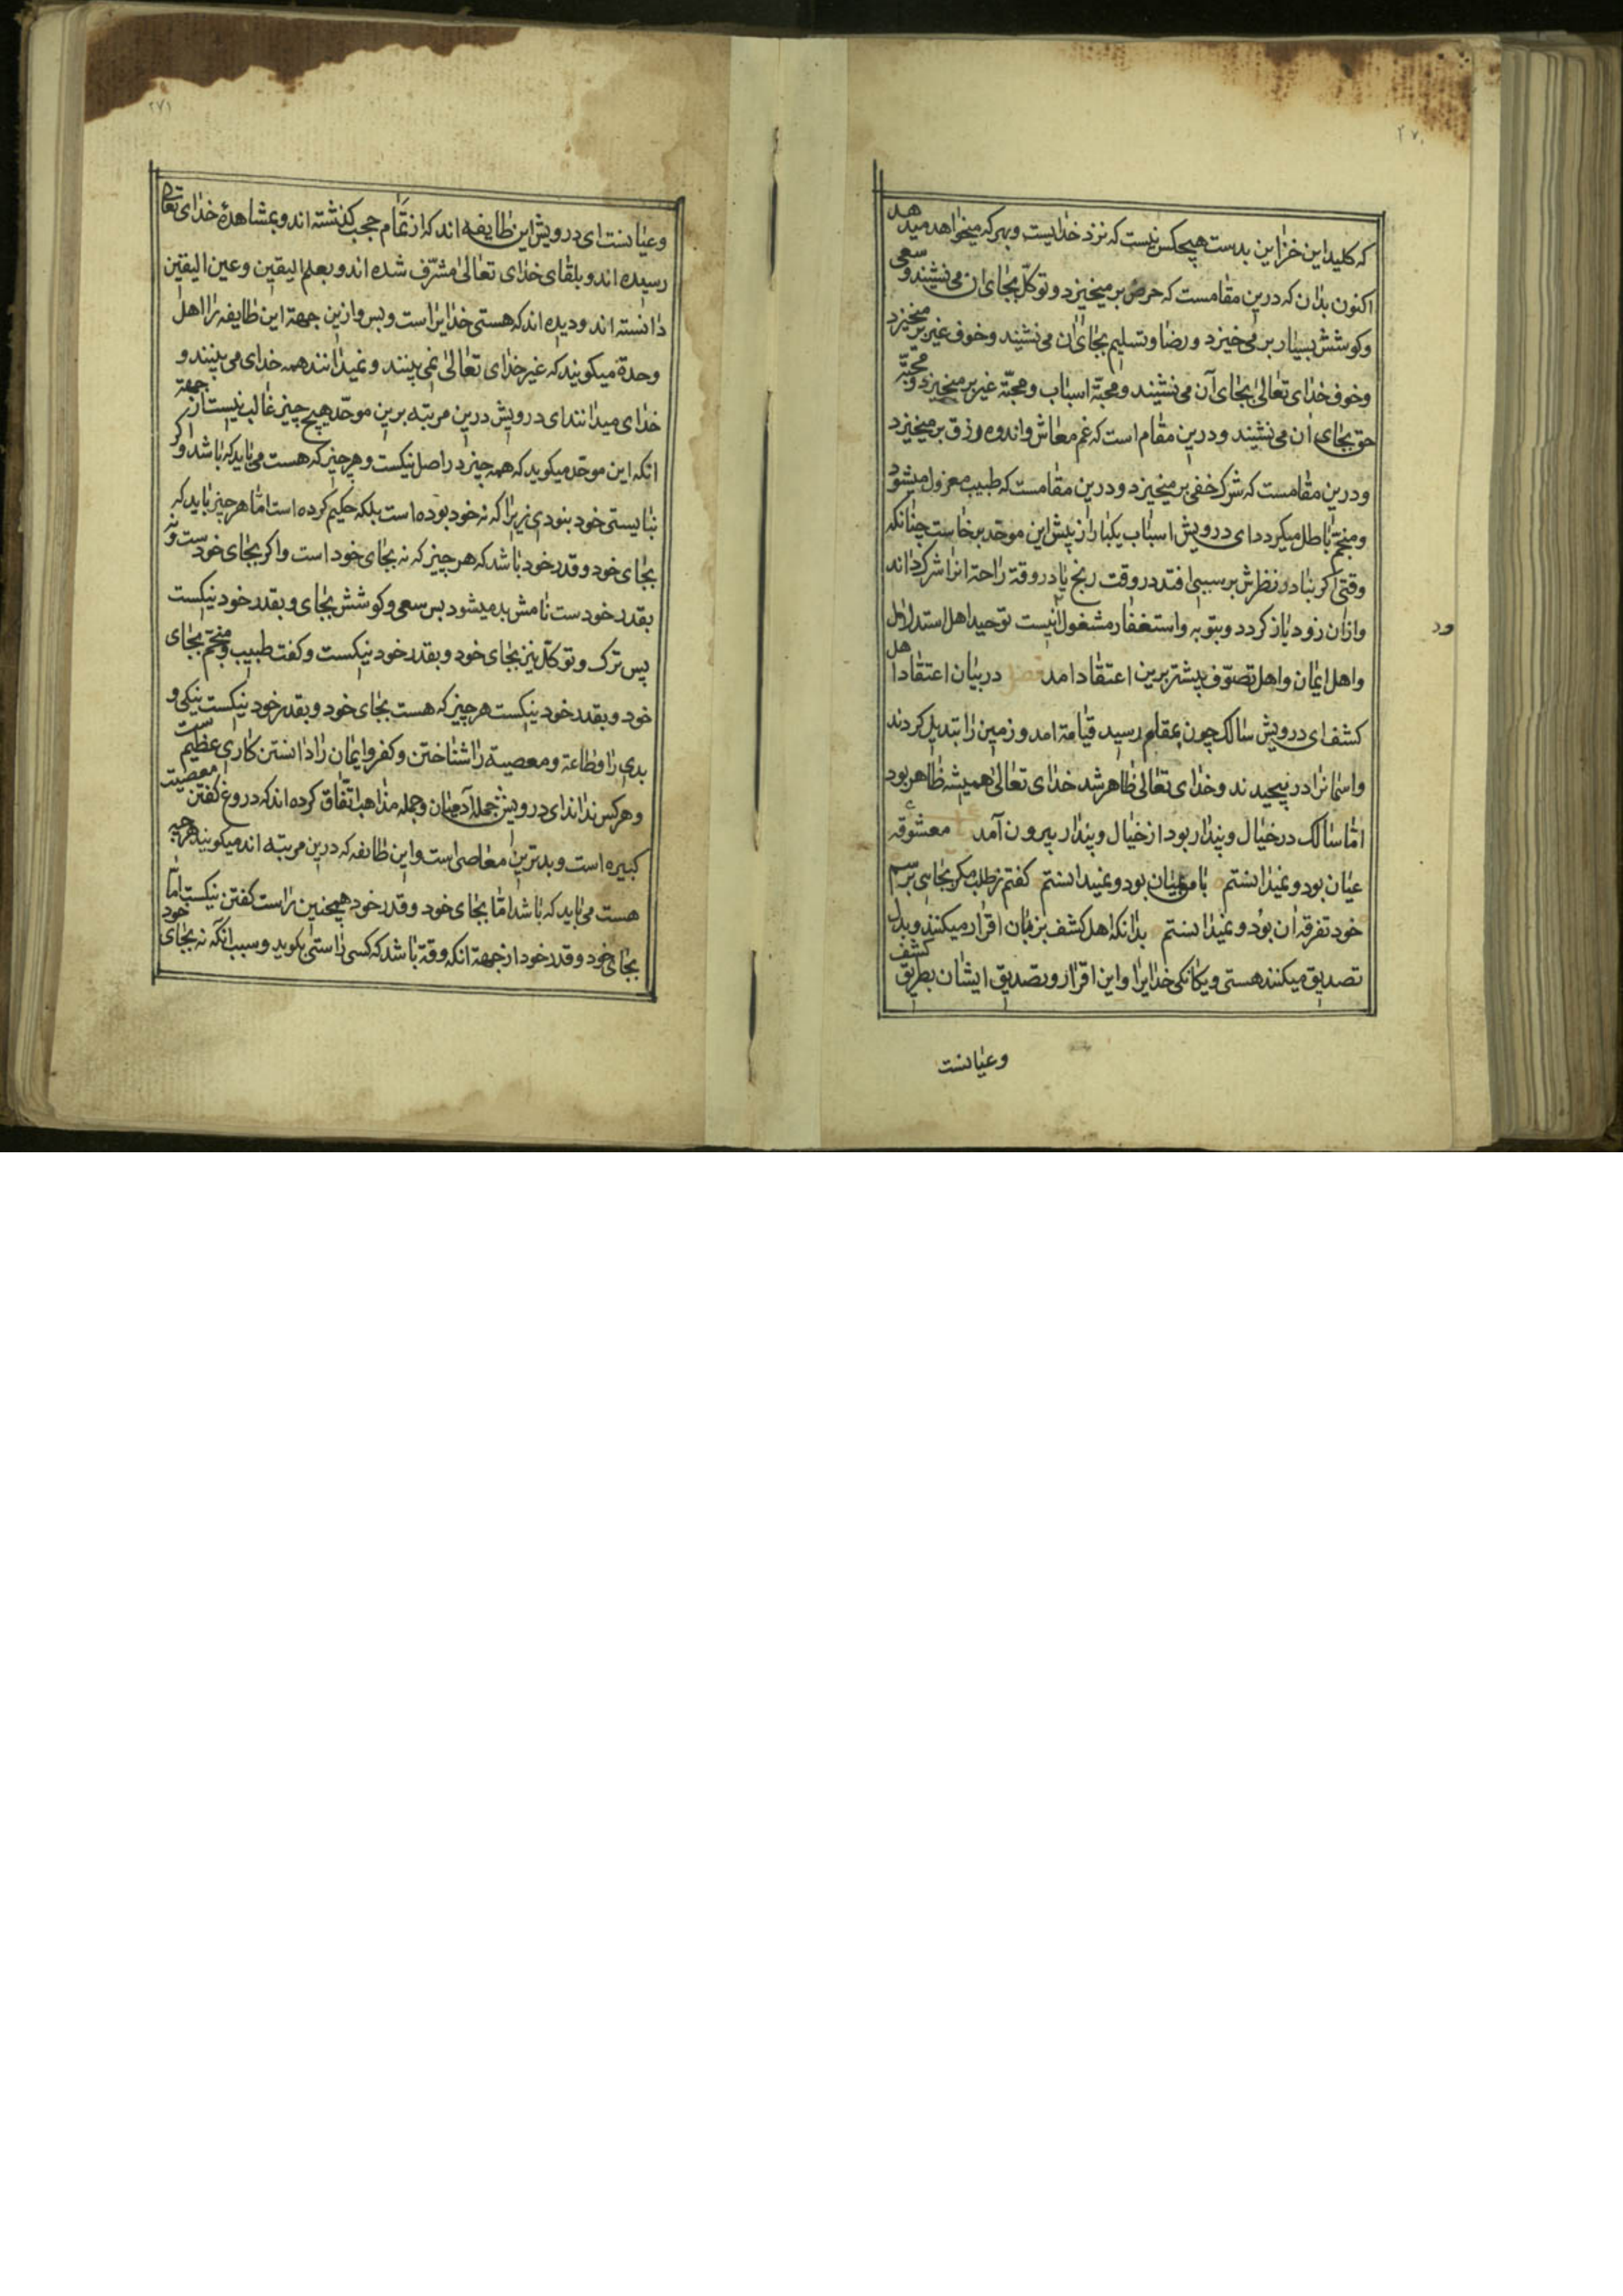 ۲۷۰
که کلید این خزاین بدست هیچکس نیست که نزد خدایست وبهر که میخواهد میدهد
اکنون بدان که درین مقامست که حرص بر میخیزد و توکّل بجای ان می نشیند و سعی
وکوشش بسیار بر می خیزد و رضا و تسلیم بجای ان می نشیند وخوف غیر بر میخیزد
وخوف خدای تعالی بجای آن می نشیند و محبّة اسباب و محبّة غیر بر میخیزد و محبّة
حق بجای ان می نشیند ودرین مقام است که غم معاش واندوه رزق بر میخیزد
ودرین مقامست که شرک خفی بر میخیزد و درین مقامست که طبیب معزول میشود
ومنجّم باطل میکردد ای درویش اسباب یکبار از پیش این موحّد بر خاست چنانکه
وقتی اکر بنادر نظرش بر سببی افتد در وقت رنج یا در وقة راحة انرا شرک داند
وازان زود باز کردد و بتوبه واستغفار مشغول توحید اهل استدلال
واهل ایمان واهل تصوّف بیشتر برین اعتقادامد فصل در بیان اعتقاد اهل
کشف ای درویش سالک چون بمقام رسید قیامة امد و زمین را تبدیل کردند
واسمانرا در پیچیدند وخدای تعالی ظاهر شد خدای تعالی همیشه ظاهر بود
امّا سالک در خیال و پندار بود از خیال و پندار بیرون آمد معشوقه
عیان بود و نمیدانستم با من بمیان بود و نمیدانستم کفتم ز طلب مکر بجایی برسم
خود تفرقه ان بود و نمیدانستم بدانکه اهل کشف بزبان اقرار میکنند و بدل
تصدیق میکنند هستی ویکانکی خدایرا واین اقرار و تصدیق ایشان بطریق کشف
وعیانست
ود
۲۷۱
وعیانست ای درویش این طایفه اند که از تمام حجب کذشته اند و بمشاهدهٔ خدای تعالی
رسیده اند و بلقای خدای تعالی مشرّف شده اند و بعلم الیقین وعین الیقین
دانسته اند و دیده اند که هستی خدایراست و بس وازین جهة این طایفه را اهل
وحدة میکویند که غیر خدای تعالی نمی بینند و نمیدانند همه خدای می بینند و
خدای میدانند ای درویش درین مرتبه برین موحّد هیچ چیز غالب نیست از جهة
انکه این موحّد میکوید که همه چیز در اصل نیکست وهر چیز که هست می باید که باشد واکر
نبایستی خود بنودی زیرا که نه خود بوده است بلکه حکیم کرده است امّا هر چیز باید که
بجای خود و قدر خود باشد که هر چیز که نه بجای خود است واکر بجای خودست ونه
بقدر خود ست نامش بد میشود پس سعی وکوشش بجای و بقدر خود نیکست
پس ترک و توکّل نیز بجای خود و بقدر خود نیکست وکفت طبیب ومنجّم بجای
خود و بقدر خود نیکست هر چیز که هست بجای خود و بقدر خود نیکست نیکی و
بدی را وطاعة و معصیة را شناختن وکفر وایمان را دانستن کاری عظیم ست
وهر کس نداند ای درویش جملهٔ آدمیان وجمله مذاهب اتّفاق کرده اند که دروغ کفتن معصیت
کبیره است و بدترین معاصی است واین طایفه که درین مرتبه اند میکویند هرچه
هست می باید که باشد امّا بجای خود و قدر خود همچنین راست کفتن نیکست امّا
بجای خود و قدر خود از جهة انکه وقة باشد که کسی راستی بکوید وسبب آنکه نه بجای خود